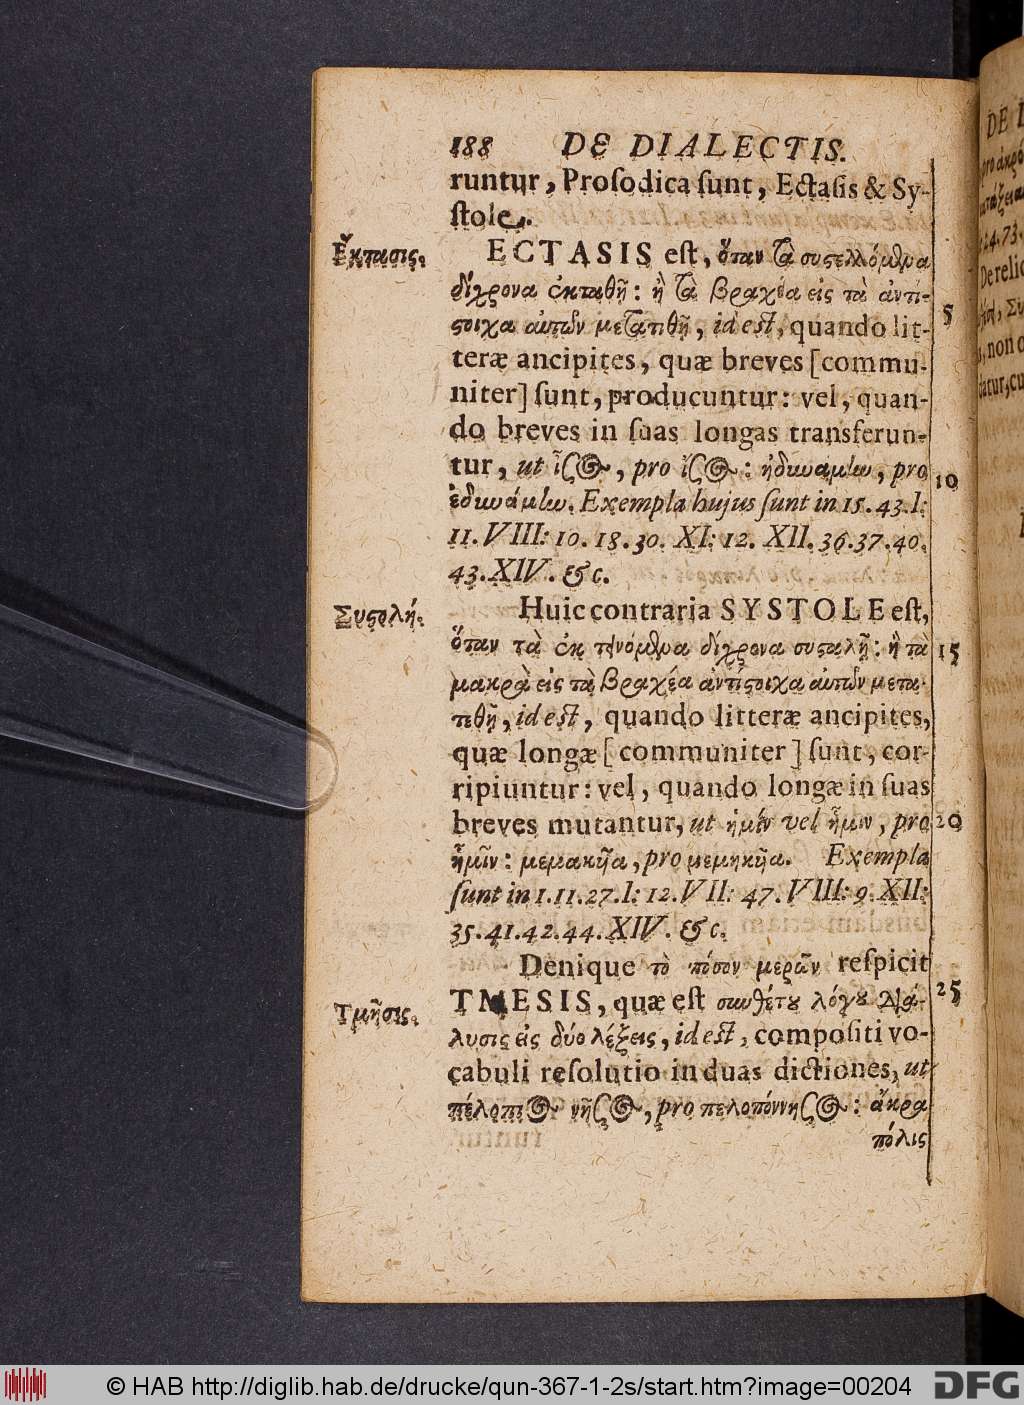 188 DE DIALECTIS.
runtur, Proſodica ſunt, Ectaſis & Sy-
ſtole.
Ἔκτασις.
ECTASIS eſt, ὅταν τὰ συστελλόμενα
δίχρονα ἐκταθῇ: ἢ τὰ βραχέα εἰς τὰ ἀντί-
στοιχα αὐτῶν μετατιθῇ, id eſt, quando lit-
5
teræ ancipites, quæ breves [commu-
niter] ſunt, producuntur: vel, quan-
do breves in ſuas longas transferun-
tur, ut ἶσος, pro ἴσος: ἠδυνάμην, pro
10
ἐδυνάμην. Exempla hujus ſunt in 15. 43. I:
11. VIII: 10. 18. 30. XI: 12. XII. 36. 37. 40.
43. XIV. &c.
Συστολή.
Huic contraria SYSTOLE eſt,
ὅταν τὰ ἐκτεινόμενα δίχρονα συσταλῇ: ἢ τὰ
15
μακρὰ εἰς τὰ βραχέα ἀντίστοιχα αὐτῶν μετα-
τιθῇ, id eſt, quando litteræ ancipites,
quæ longæ [communiter] ſunt, cor-
ripiuntur: vel, quando longæ in ſuas
breves mutantur, ut ἡμίν vel ἧμιν, pro
20
ἡμῖν: μεμακυῖα, pro μεμηκυῖα. Exempla
ſunt in 1. 11. 27. I: 12. VII: 47. VIII: 9. XII:
35. 41. 42. 44. XIV. &c.
Denique τὸ πόσον μερῶν reſpicit
Τμῆσις.
TMESIS, quæ eſt συνθέτου λόγου διά-
25
λυσις εἰς δύο λέξεις, id eſt, compoſiti vo-
cabuli reſolutio in duas dictiones, ut
πέλοπος νῆσος, pro πελοπόννησος: ἄκρα
πόλις
DE
© HAB http://diglib.hab.de/drucke/qun-367-1-2s/start.htm?image=00204
DFG